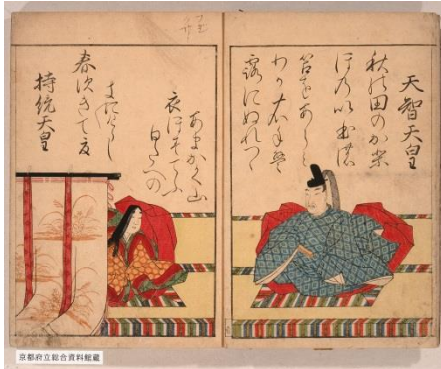 天智天皇
秋の田のかり
ほの
苫をあらみ
わか衣手は
露にぬれつゝ
持統天皇
春すきて夏
きにけらし
白たへの
衣ほすてふ
あまのかく山
京都府立総合資料館蔵